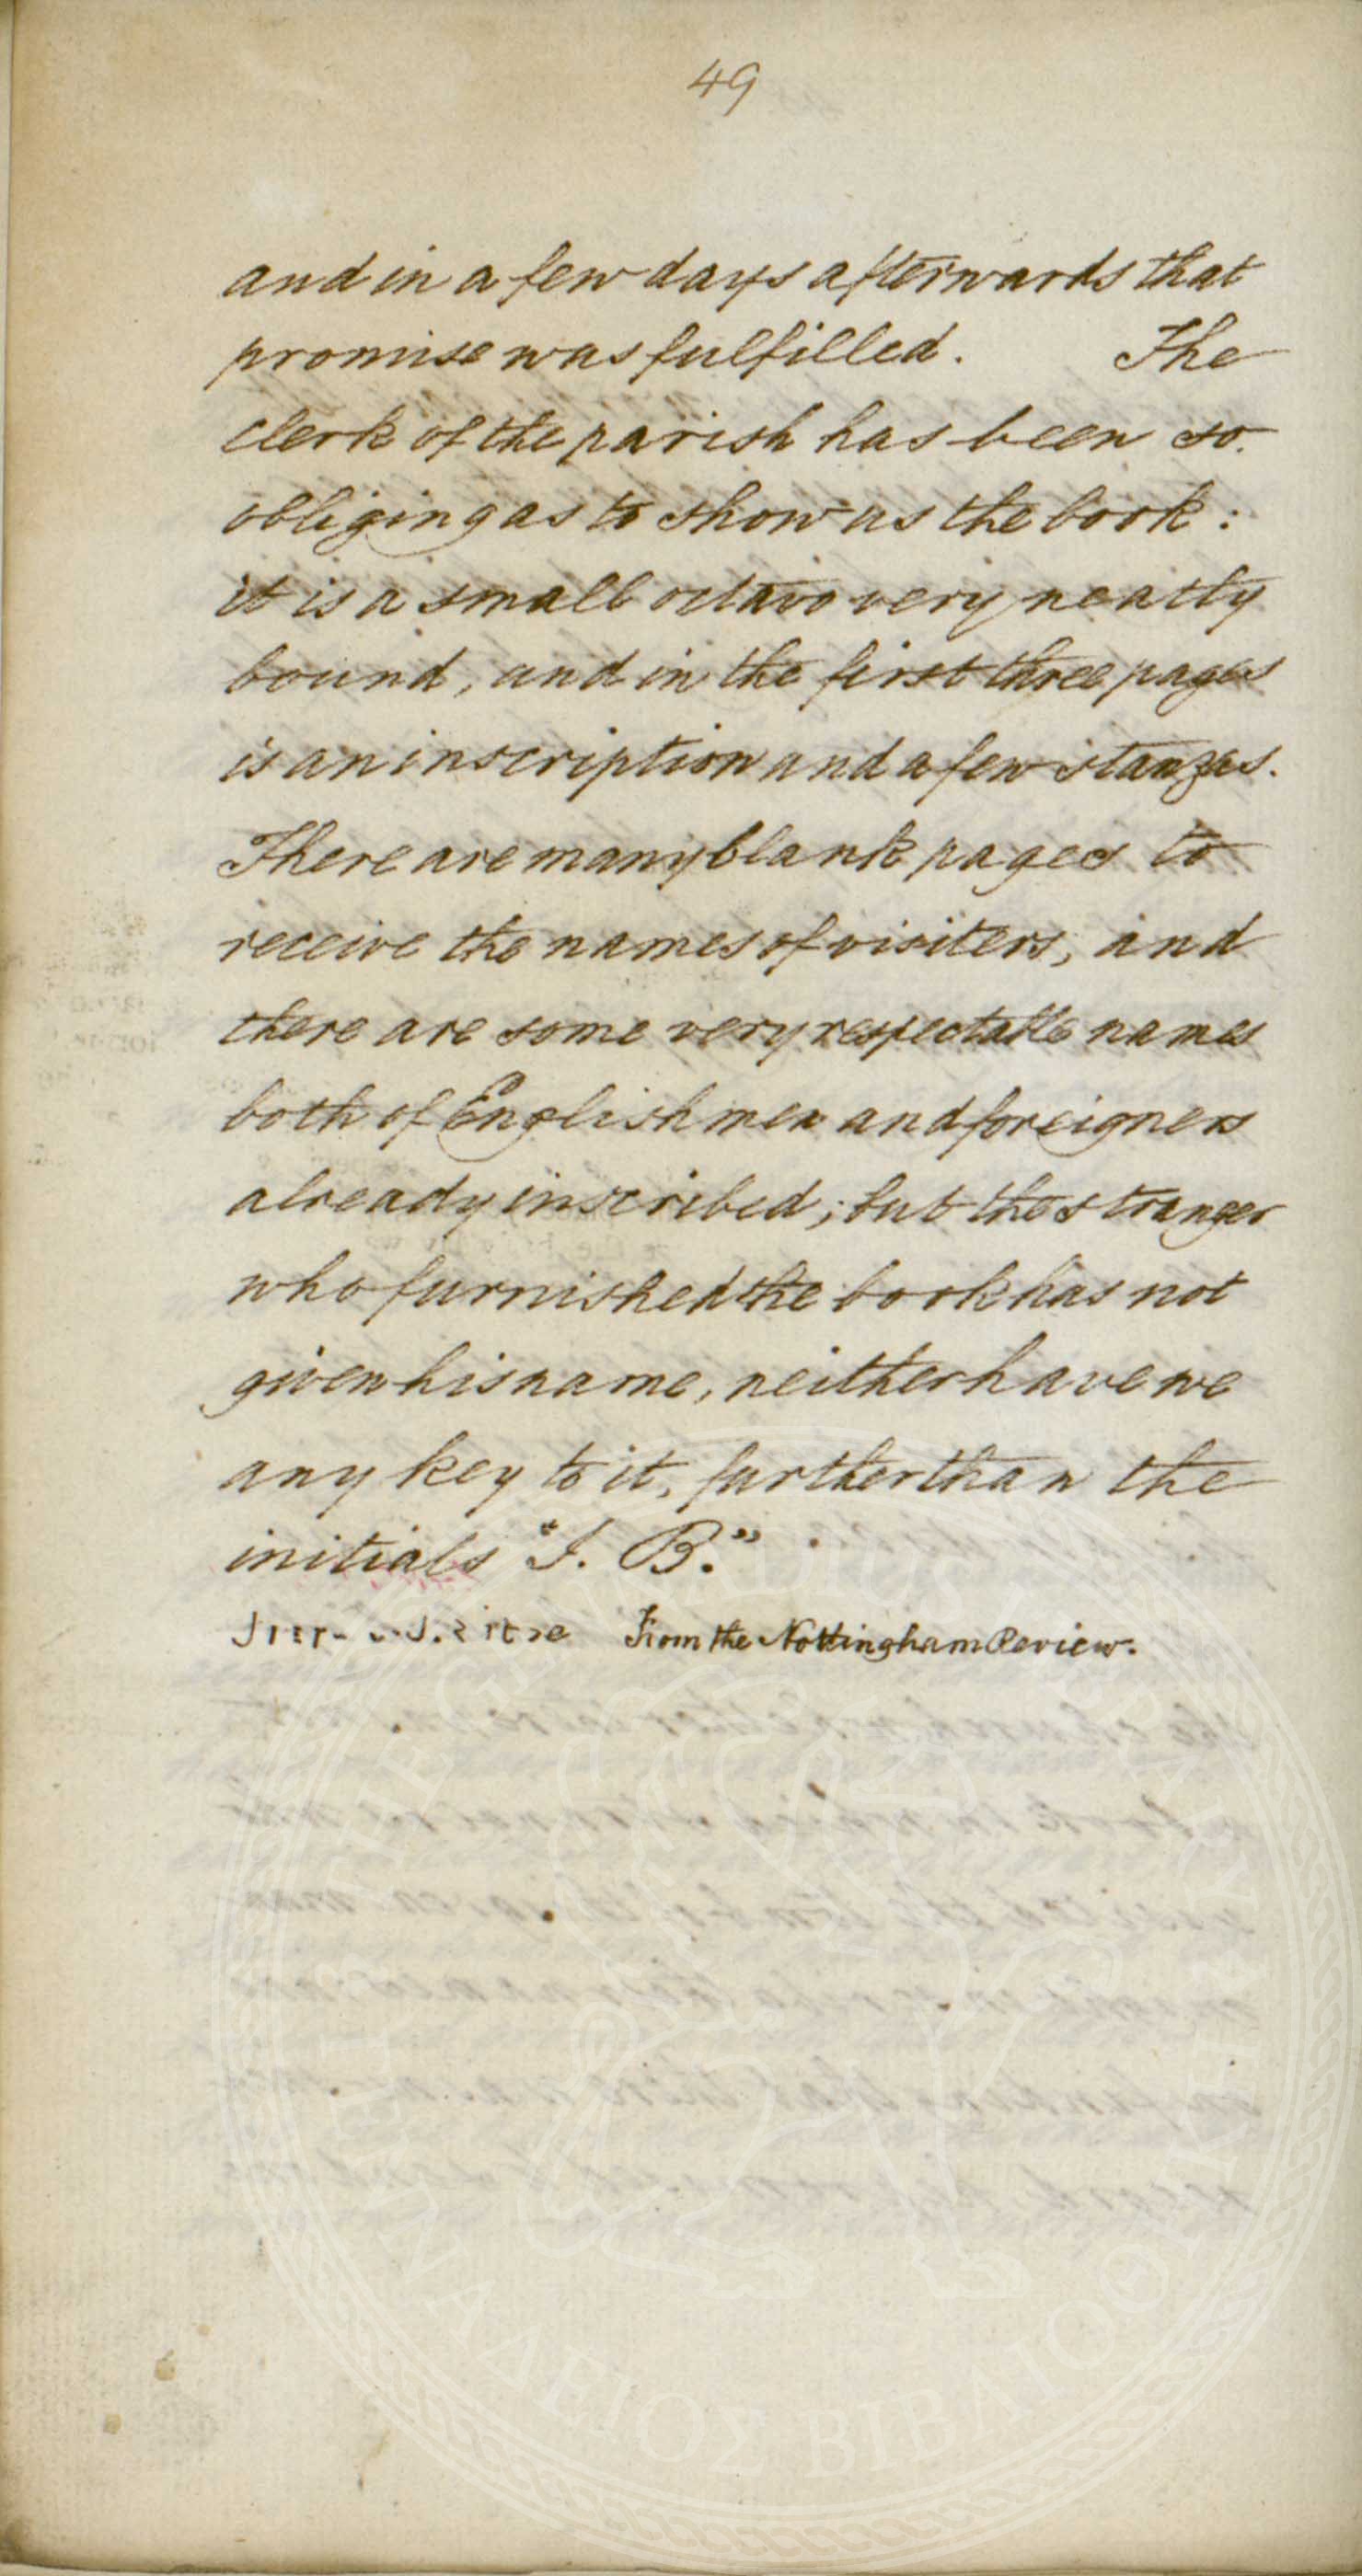 49
and in a few days afterwards that
promise was fulfilled. The
clerk of the parish has been so
obliging as to show us the book :
it is a small octavo very neatly
bound, and in the first three pages
is an inscription and a few stanzas.
There are many blank pages to
receive the names of visiters, and
there are some very respectable names
both of Englishmen and foreigners
already inscribed ; but the stranger
who furnished the book has not
given his name, neither have we
any key to it, further than the
initials "J. B."
From the Nottingham Review.
ΓΕΝΝΑΔΕΙΟΣ ΒΙΒΛΙΟΘΗΚΗ